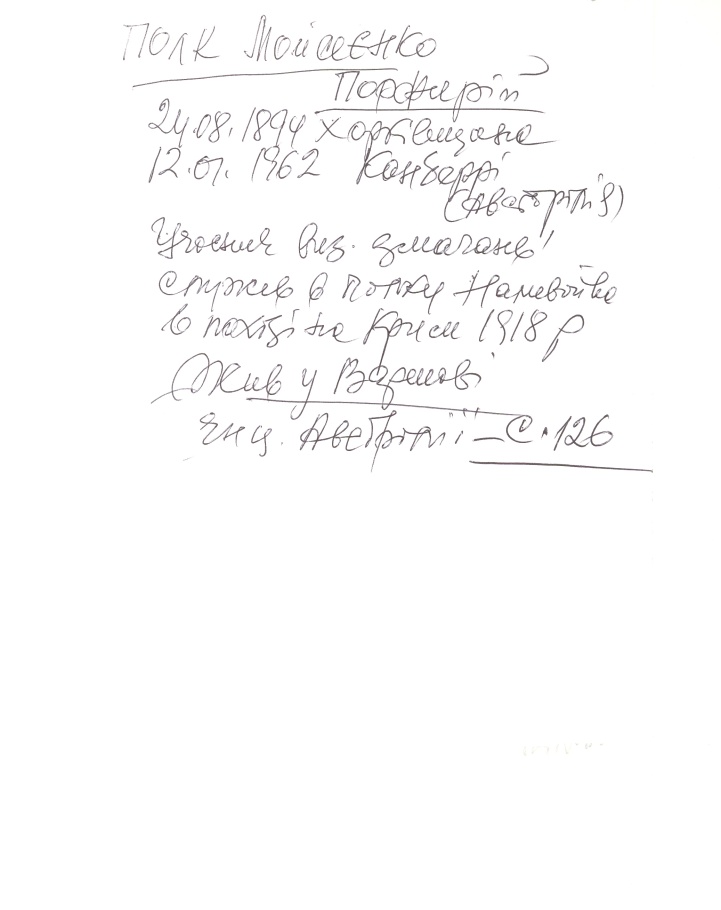 Полк Мойсеєнко
Порфирій
24.08.1894 Харківщана
12.01.1962 Канберрі
(Австрілія)
Учасник виз. змагань
служив в полку Наливайка
в поході на Крим 1918 р
Жив у Варшаві
Енц. Австрілії – С. 126